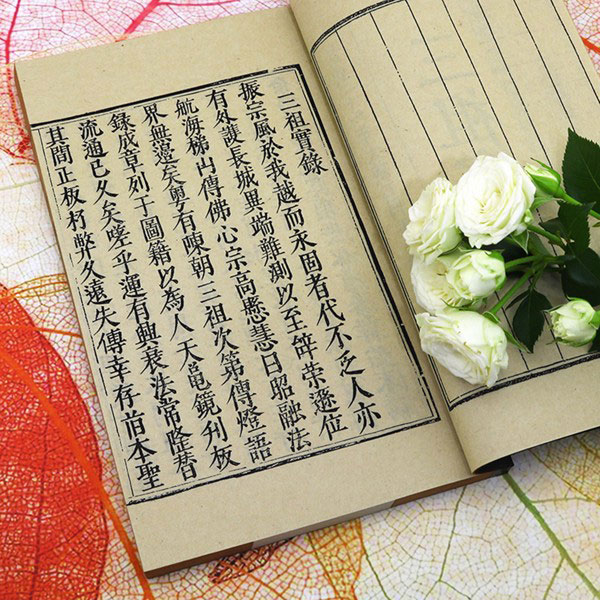 三祖實錄
振宗風於我越而永固者代不乏人亦
有外護長城異端難測以至辝榮遜位
航海梯山傳佛心宗高懸慧日昭融法
界無邉矣粤有陳朝三祖次第傳燈語
錄成章列于圖籍以為人天龜鏡刋板
流通已久矣嗟乎運有興衰法常隆替
其間正板朽弊久遠失傳幸存首本聖